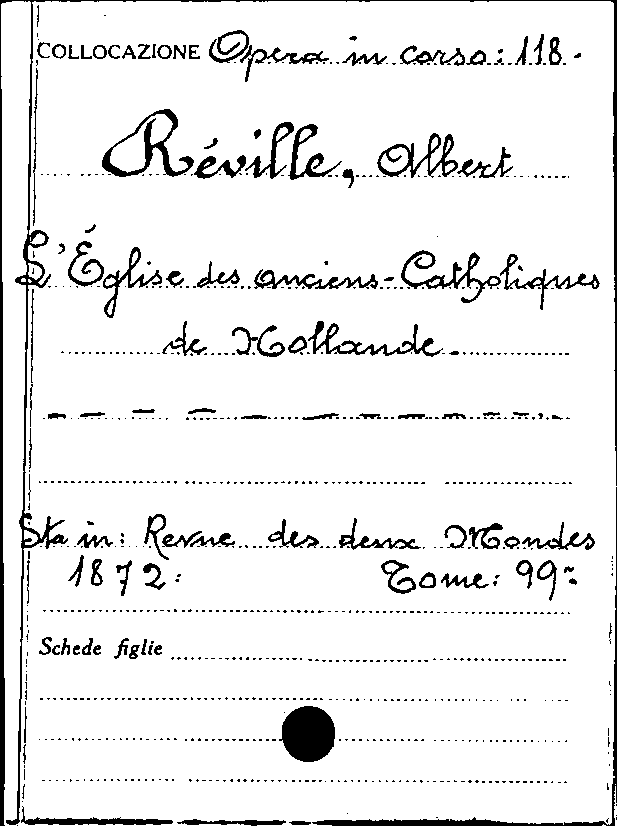 COLLOCAZIONE Opera in corso: 118.
Réville, Albert
L'Église des anciens-Catholiques
de Hollande.
Sta in: Revue des deux Mondes
1872: Tome: 99~
Schede figlie